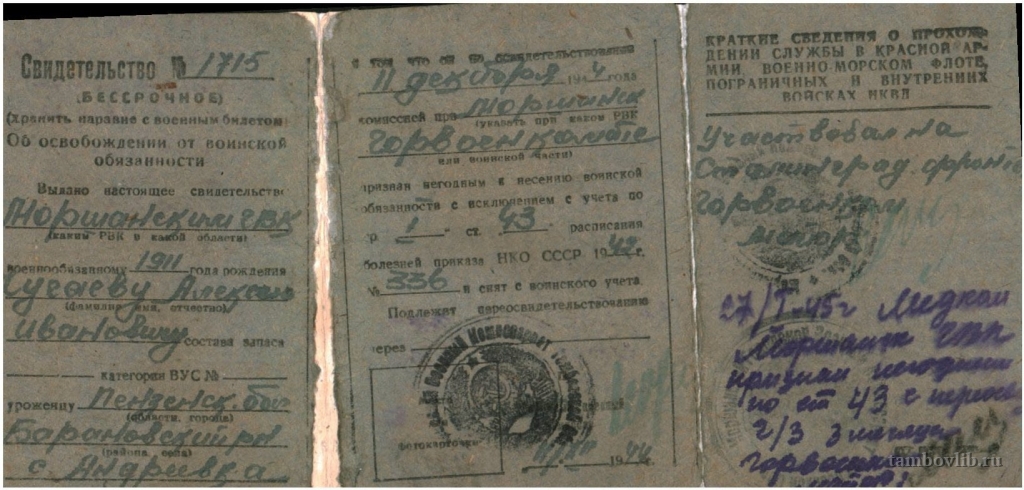 Свидетельство № 1715
(БЕССРОЧНОЕ)
(хранить наравне с военным билетом)
Об освобождении от воинской
обязанности
Выдано настоящее свидетельство
Моршанским ГВК
(каким РВК и какой области)
военнообязанному 1911 года рождения
Сугаеву Алексан
(фамилия, имя, отчество)
Ивановичу состава запаса
категории ВУС №
уроженцу Пензенск. обл
(области, города)
Барановский рн
(района, села)
с. Андривка
в том что он по освидетельствовании
11 декабря 1944 года
комиссией при Моршанск
(указать при каком РВК
горвоенкомате
или воинской части)
признан негодным к несению воинской
обязанности с исключением с учета по
гр 1 ст. 43 расписания
болезней приказа НКО СССР 1942 г.
№ 336 и снят с воинского учета.
Подлежит переосвидетельствованию
через
фотокарточки
1944
КРАТКИЕ СВЕДЕНИЯ О ПРОХОЖ-
ДЕНИИ СЛУЖБЫ В КРАСНОЙ АР-
МИИ, ВОЕННО-МОРСКОМ ФЛОТЕ,
ПОГРАНИЧНЫХ И ВНУТРЕННИХ
ВОЙСКАХ НКВД
Участвовал на
Сталинград. фронте
Горвоенком
майор
45 г
Моршанск ГВК
признан негодным
по ст 43 с
2/3 3 месяца
Горвоенком
tambovlib.ru